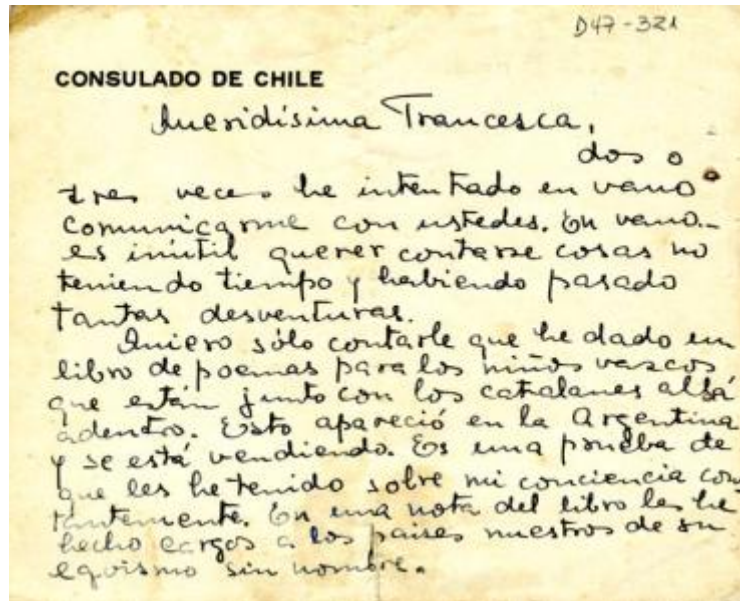 D47-321
CONSULADO DE CHILE
Queridísima Francesca,
dos o
tres veces he intentado en vano
comunicarme con ustedes. En vano.
es inútil querer contarse cosas no
teniendo tiempo y habiendo pasado
tantas desventuras.
Quiero sólo contarle que he dado un
libro de poemas para los niños vascos
que están junto con los catalanes allá
adentro. Esto apareció en la Argentina
y se está vendiendo. Es una prueba de
que les he tenido sobre mi conciencia cons
tantemente. En una nota del libro les he
hecho cargos a los países nuestros de su
egoismo sin nombre.